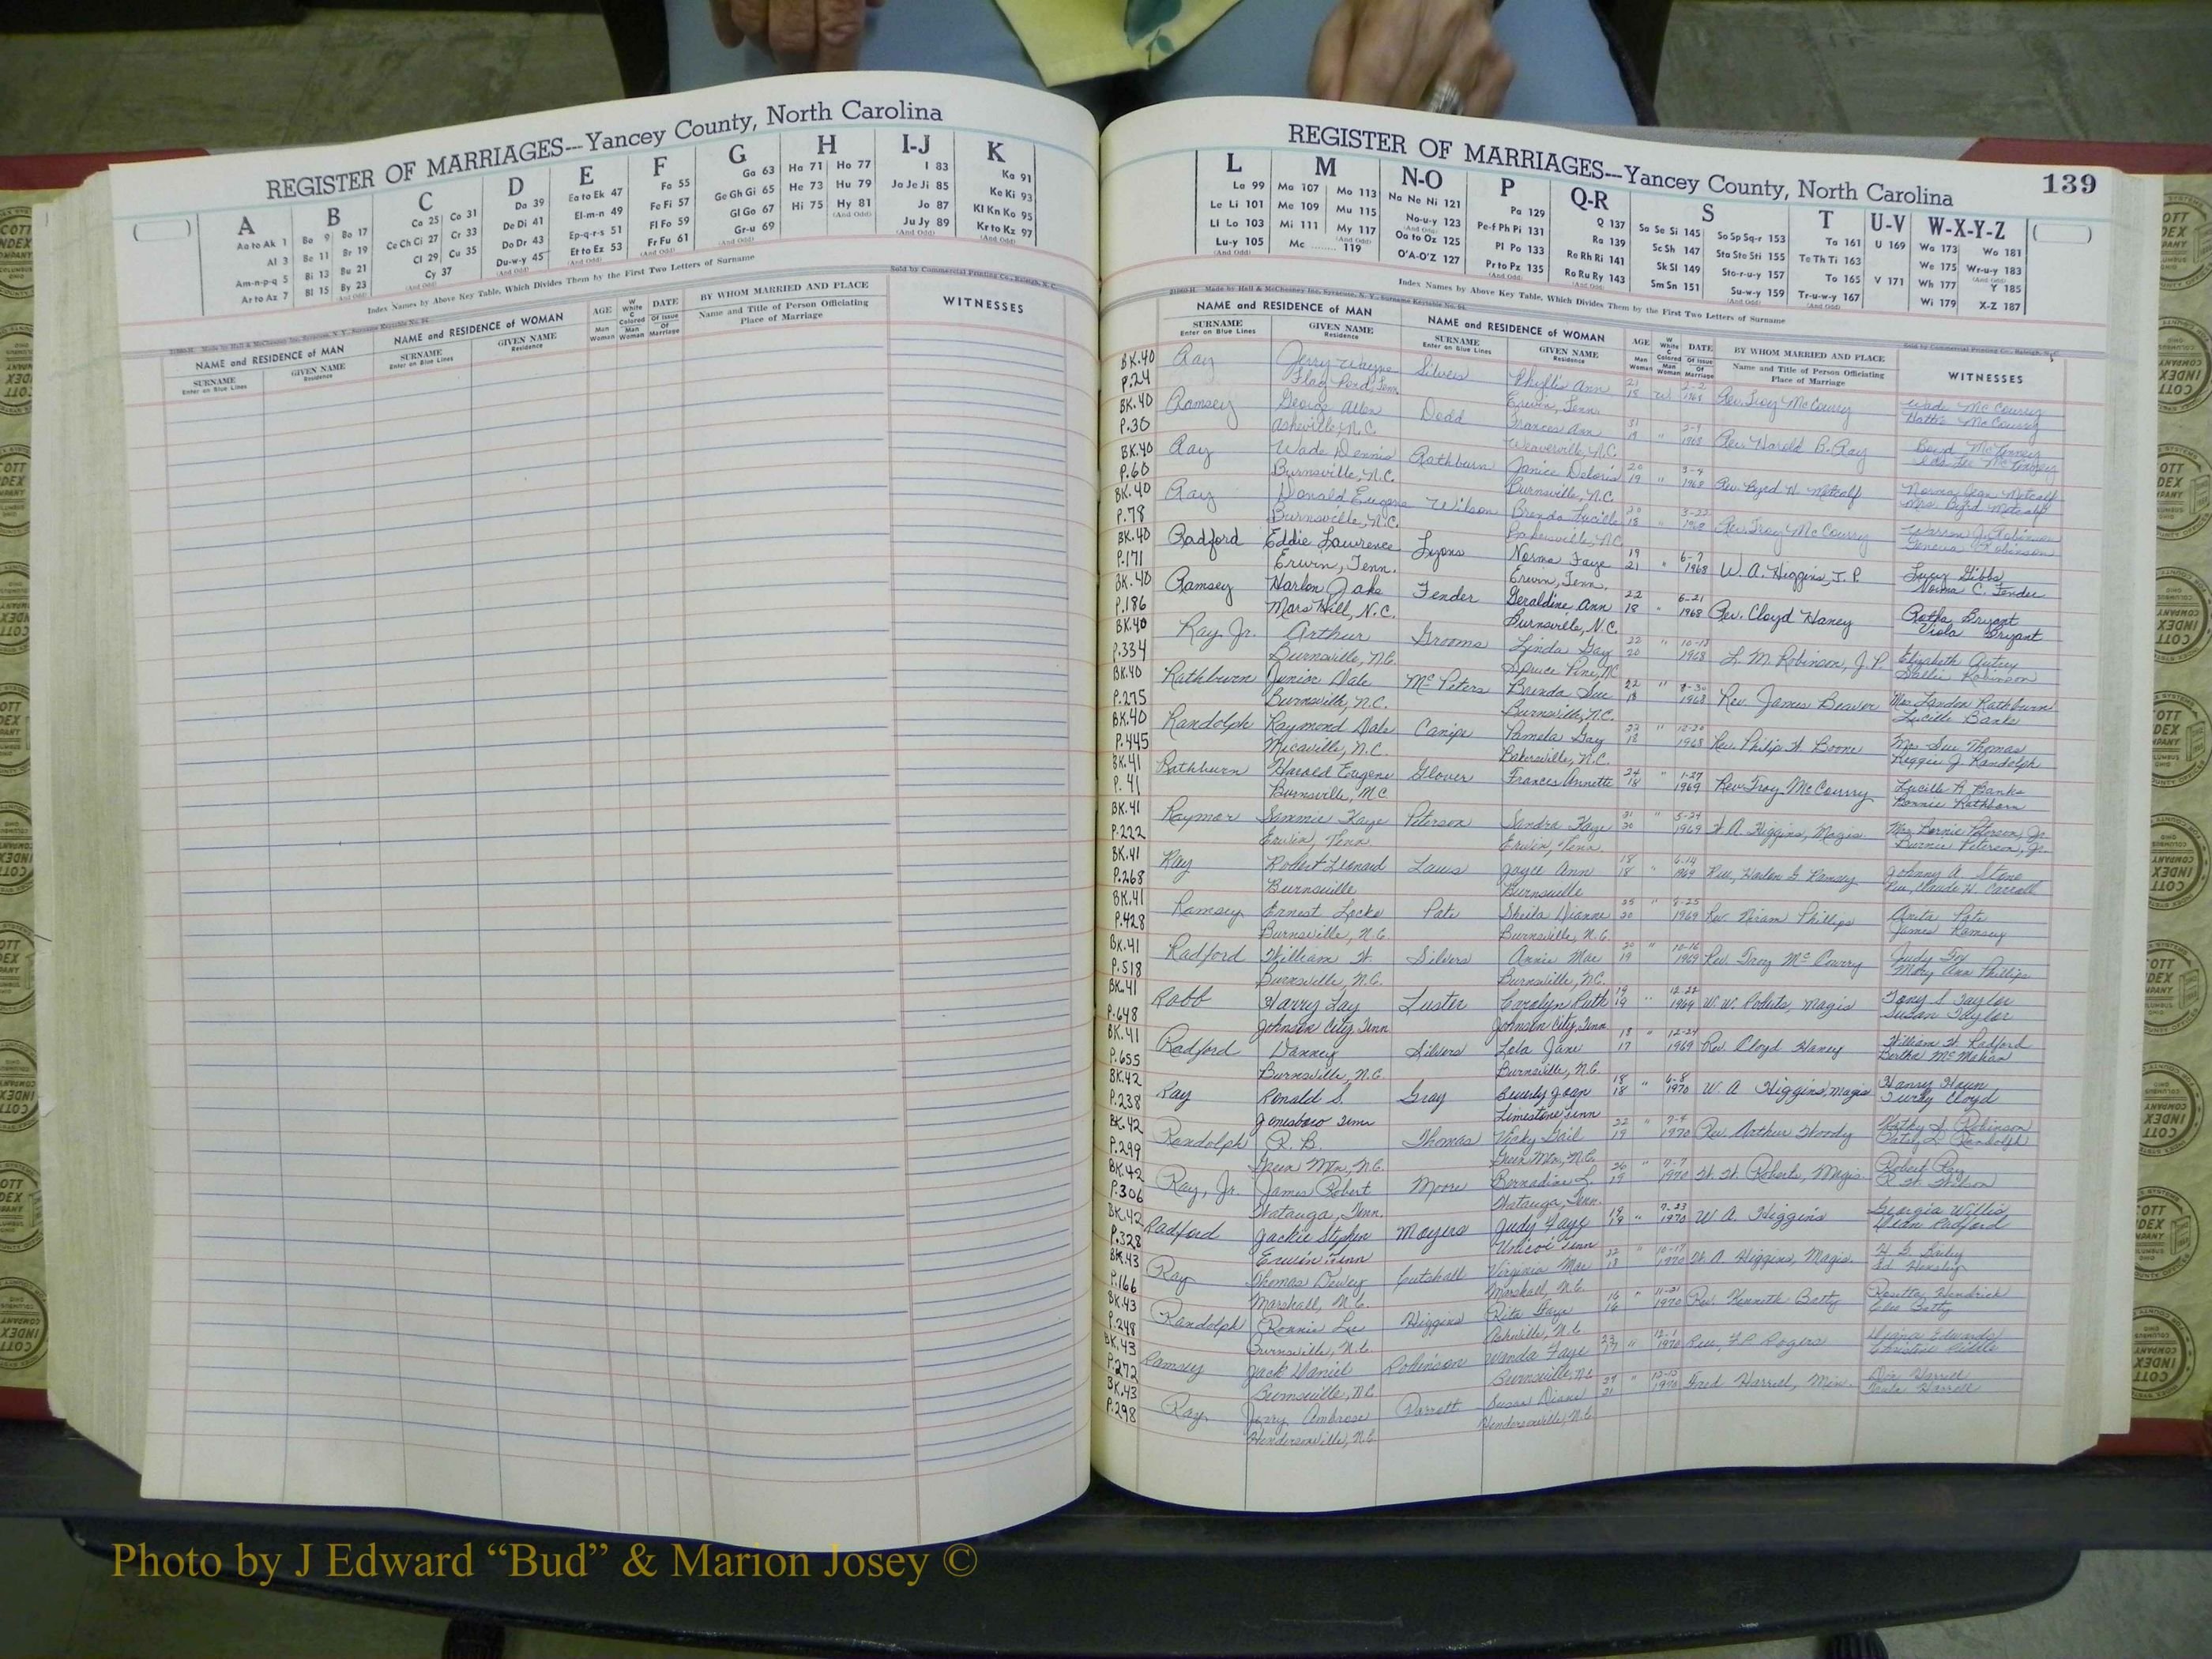 REGISTER OF MARRIAGES---Yancey County, North Carolina
A B C D E F G H I-J K
Aa to Ak 1 Al 3 Am-n-p-q 5 Ar to Az 7
Ba 9 Be 11 Bi 13 Bl 15 Bo 17 Br 19 Bu 21 By 23
Ca 25 Ce Ch Ci 27 Cl 29 Co 31 Cr 33 Cu 35 Cy 37
Da 39 De Di 41 Do Dr 43 Du-w-y 45
Ea to Ek 47 El-m-n 49 Ep-q-r-s 51 Et to Ez 53
Fa 55 Fe Fi 57 Fl Fo 59 Fr Fu 61
Ga 63 Ge Gh Gi 65 Gl Go 67 Gr-u 69
Ha 71 He 73 Hi 75 Ho 77 Hu 79 Hy 81
I 83 Ja Je Ji 85 Jo 87 Ju Jy 89
Ka 91 Ke Ki 93 Kl Kn Ko 95 Kr to Kz 97
Index Names by Above Key Table, Which Divides Them by the First Two Letters of Surname
Sold by Commercial Printing Co., Raleigh, N. C.
NAME and RESIDENCE of MAN
SURNAME Enter on Blue Lines
GIVEN NAME Residence
NAME and RESIDENCE of WOMAN
SURNAME Enter on Blue Lines
GIVEN NAME Residence
AGE Man Woman
W White C Colored Man Woman
DATE Of Issue Of Marriage
BY WHOM MARRIED AND PLACE
Name and Title of Person Officiating
Place of Marriage
WITNESSES
REGISTER OF MARRIAGES---Yancey County, North Carolina
139
L M N-O P Q-R S T U-V W-X-Y-Z
La 99 Le Li 101 Ll Lo 103 Lu-y 105
Ma 107 Me 109 Mi 111 Mc 119 Mo 113 Mu 115 My 117
Na Ne Ni 121 No-u-y 123 Oa to Oz 125 O'A-O'Z 127
Pa 129 Pe-f Ph Pi 131 Pl Po 133 Pr to Pz 135
Q 137 Ra 139 Re Rh Ri 141 Ro Ru Ry 143
Sa Se Si 145 Sc Sh 147 Sk Sl 149 Sm Sn 151 So Sp Sq-r 153 Sta Ste Sti 155 Sto-r-u-y 157 Su-w-y 159
Ta 161 Te Th Ti 163 To 165 Tr-u-w-y 167
U 169 V 171
Wa 173 We 175 Wh 177 Wi 179 Wo 181 Wr-u-y 183 Y 185 X-Z 187
Index Names by Above Key Table, Which Divides Them by the First Two Letters of Surname
NAME and RESIDENCE of MAN
SURNAME Enter on Blue Lines
GIVEN NAME Residence
NAME and RESIDENCE of WOMAN
SURNAME Enter on Blue Lines
GIVEN NAME Residence
AGE Man Woman
DATE Of Issue Of Marriage
BY WHOM MARRIED AND PLACE
Name and Title of Person Officiating
Place of Marriage
WITNESSES
BK.40 Ray Jerry Wayne Silvers Phyllis Ann 21 W 2-2 Rev. Troy McCourry Wade McCourry
P.24 Flag Pond, Tenn. Erwin, Tenn. 18 1968 Hattie McCourry
BK.40 Ramsey George Allen Dodd Frances Ann 31 " 2-9 Rev. Harold B. Ray Boyd McKinney
P.30 Asheville, N.C. Weaverville, N.C. 19 1968
BK.40 Ray Wade Dennis Rathburn Janice Deloris 20 " 3-4 Rev. Byrd H. Metcalf Norma Jean Metcalf
P.60 Burnsville, N.C. Burnsville, N.C. 19 1968 Mrs. Byrd Metcalf
BK.40 Ray Donald Eugene Wilson Brenda Lucille 20 " 3-22 Rev. Troy McCourry Warren J. Robinson
P.78 Burnsville, N.C. Bakersville, N.C. 18 1968 Geneva Robinson
BK.40 Radford Eddie Lawrence Lyons Norma Faye 19 " 6-7 W. A. Higgins, J. P. Lucy Gibbs
P.171 Erwin, Tenn. Erwin, Tenn. 21 1968 Norma C. Fender
BK.40 Ramsey Harlon Jake Fender Geraldine Ann 22 " 6-21 Rev. Cloyd Haney Retha Bryant
P.186 Mars Hill, N.C. Burnsville, N.C. 18 1968 Viola Bryant
BK.40 Ray, Jr. Arthur Grooms Linda Gay 22 " 10-18 L. M. Robinson, J. P. Elizabeth Autrey
P.334 Burnsville, N.C. Spruce Pine, N.C. 20 1968 Sallie Robinson
BK.40 Rathburn Junior Dale McPeters Brenda Sue 22 " 8-30 Rev. James Beaver Mrs. Landon Rathburn
P.275 Burnsville, N.C. Burnsville, N.C. 18 1968 Lucille Banks
BK.40 Randolph Raymond Dale Canipe Pamela Gay 22 " 12-20 Rev. Philip A. Boone Mrs. Sue Thomas
P.445 Micaville, N.C. Bakersville, N.C. 18 1968 Reggie J. Randolph
BK.41 Rathburn Harold Eugene Glover Frances Annette 24 " 1-27 Rev. Troy McCourry Lucille R. Banks
P.41 Burnsville, N.C. 18 1969 Bonnie Rathborn
BK.41 Raymer Sammie Kaye Peterson Sandra Faye 21 " 5-24 W. A. Higgins, Magis. Mrs. Bernie Peterson, Jr.
P.222 Erwin, Tenn. Erwin, Tenn. 20 1969 Burnie Peterson, Jr.
BK.41 Ray Robert Leonard Laws Joyce Ann 18 " 6-14 Rev. Harlon G. Ramsey Johnny A. Stone
P.268 Burnsville Burnsville 18 1969 Rev. Claude H. Carroll
BK.41 Ramsey Ernest Locke Pate Sheila Dianne 25 " 8-25 Rev. Niram Phillips Anita Pate
P.428 Burnsville, N.C. Burnsville, N.C. 20 1969 James Ramsey
BK.41 Radford William H. Silvers Annie Mae 20 " 10-16 Rev. Troy McCourry Judy Fox
P.518 Burnsville, N.C. Burnsville, N.C. 19 1969 Mary Ann Phillips
BK.41 Robb Harry Lay Luster Carolyn Ruth 19 " 12-22 W. W. Roberts, Magis Tony S Taylor
P.648 Johnson City, Tenn Johnson City, Tenn 19 1969 Susan Taylor
BK.41 Radford Danney Silvers Lola Jane 18 " 12-24 Rev. Cloyd Haney William H. Radford
P.655 Burnsville, N.C. Burnsville, N.C. 17 1969 Bertha McMahan
BK.42 Ray Ronald S. Gray Beverly Joan 18 " 6-8 W. A Higgins, Magis Harry Haun
P.238 Jonesboro Tenn Limestone Tenn 18 1970 Terry Cloyd
BK.42 Randolph R. B. Thomas Vicky Gail 22 " 7-4 Rev. Arthur Woody Kathy S. Robinson
P.299 Green Mtn, N.C. Green Mtn, N.C. 19 1970 Patsy L. Randolph
BK.42 Ray, Jr. James Robert Moore Bernadine L. 26 " 7-7 W. W. Roberts, Magis. Robert Ray
P.306 Watauga, Tenn. Watauga, Tenn. 19 1970 R. W. Wilson
BK.42 Radford Jackie Stephen Moyers Judy Faye 19 " 7-23 W A. Higgins Georgia Willis
P.328 Erwin Tenn Unicoi Tenn 19 1970 Dean Radford
BK.43 Ray Thomas Dewey Cutshall Virginia Mae 22 " 10-17 W. A. Higgins, Magis. H. G. Bailey
P.166 Marshall, N.C. Marshall, N.C. 18 1970 Ed Hensley
BK.43 Randolph Ronnie Lee Higgins Rita Faye 16 " 11-21 Rev. Kenneth Batty Rosetta Hendrick
P.248 Burnsville, N.C. Asheville, N.C. 16 1970 Cleo Batty
BK.43 Ramsey Jack Daniel Robinson Wanda Faye 23 " 12-1 Rev. F.P. Rogers Diana Edwards
P.272 Burnsville, N.C. Burnsville, N.C. 17 1970 Christine Riddle
BK.43 Ray Jerry Ambrose Parrott Susan Diane 29 " 12-12 Fred Harrell, Min.
P.298 Hendersonville, N.C. Hendersonville, N.C. 21 1970
Photo by J Edward “Bud” & Marion Josey ©